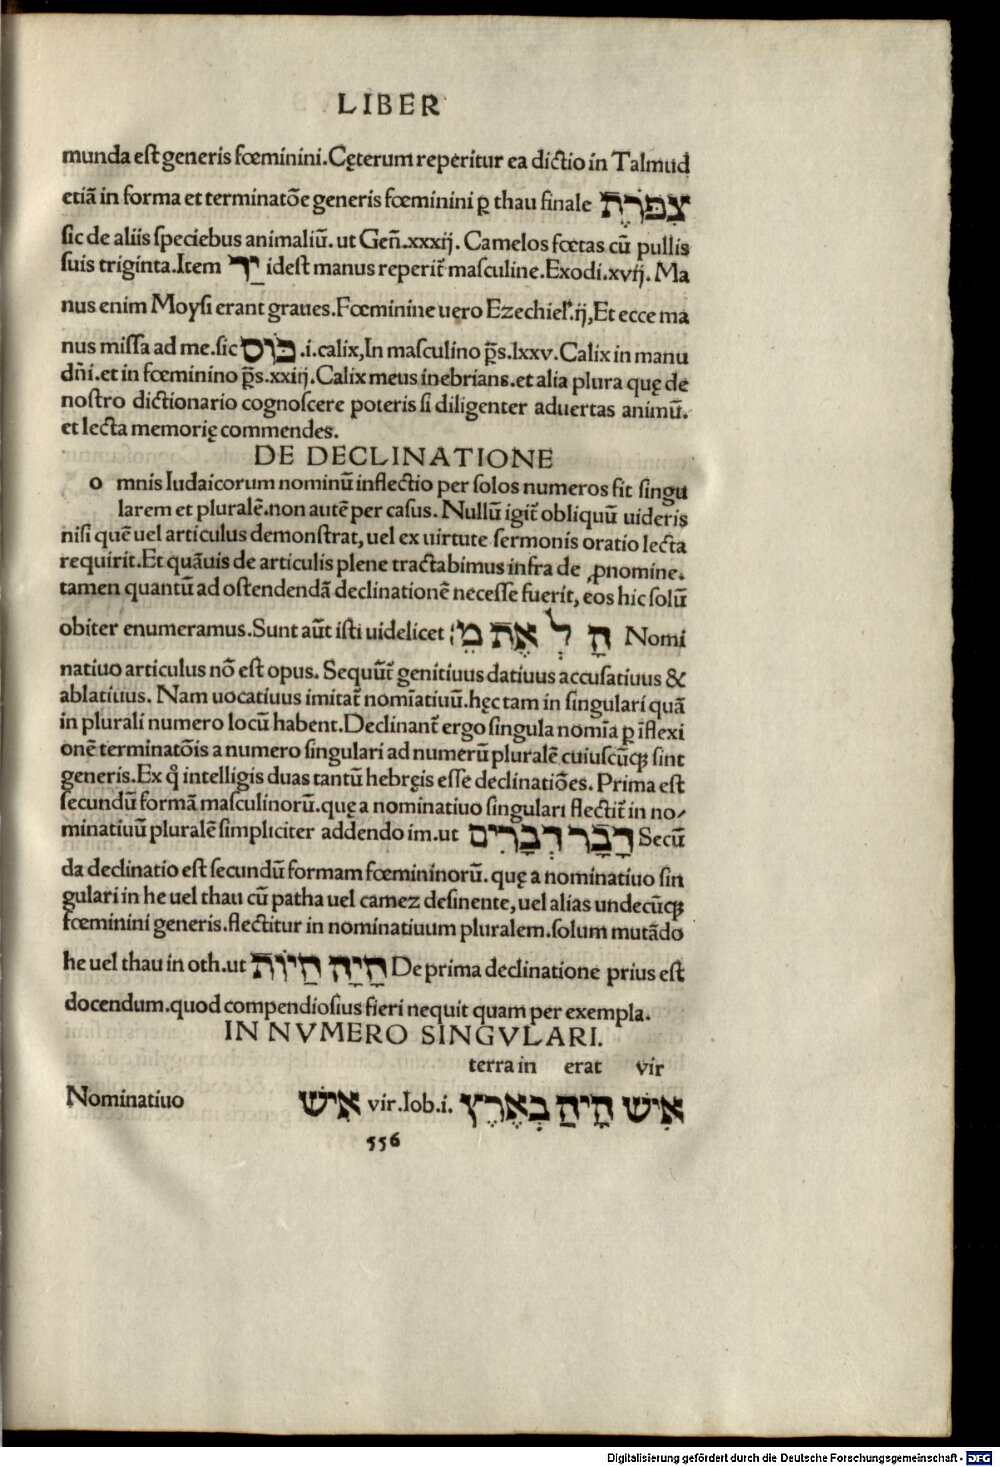 LIBER
munda est generis fœminini. Cęterum reperitur ea dictio in Talmud
etiā in forma et terminatōe generis fœminini ꝑ thau finale צִפֹּרֶת
sic de aliis speciebus animaliū. ut Geñ.xxxij. Camelos fœtas cū pullis
suis triginta. Item יַד idest manus reperit᷑ masculine. Exodi.xvij. Ma
nus enim Moysi erant graues. Fœminine uero Ezechiel᷑.ij, Et ecce ma
nus missa ad me. sic כּוֹס .i. calix, In masculino p̄s.lxxv. Calix in manu
dñi. et in fœminino p̄s.xxiij. Calix meus inebrians. et alia plura quę de
nostro dictionario cognoscere poteris si diligenter aduertas animū.
et lecta memorię commendes.
DE DECLINATIONE
o mnis Iudaicorum nominū inflectio per solos numeros fit singu
larem et pluralē. non autē per casus. Nullū igit᷑ obliquū uideris
nisi quē uel articulus demonstrat, uel ex uirtute sermonis oratio lecta
requirit. Et quāuis de articulis plene tractabimus infra de ꝓnomine.
tamen quantū ad ostendendā declinationē necesse fuerit, eos hic solū
obiter enumeramus. Sunt aūt isti uidelicet הָ לְ אֶת מִ: Nomi
natiuo articulus nō est opus. Sequūt᷑ genitiuus datiuus accusatiuus &
ablatiuus. Nam uocatiuus imitat᷑ nomīatiuū. hęc tam in singulari quā
in plurali numero locū habent. Declinant᷑ ergo singula nomīa ꝑ īflexi
onē terminatōis a numero singulari ad numerū pluralē cuiuscūqꝫ sint
generis. Ex qͦ intelligis duas tantū hebręis esse declinatiōes. Prima est
secundū formā masculinorū. quę a nominatiuo singulari flectit᷑ in no/
minatiuū pluralē simpliciter addendo im. ut דָּבָר דְּבָרִים Secū
da declinatio est secundū formam fœmininorū. quę a nominatiuo sin
gulari in he uel thau cū patha uel camez desinente, uel alias undecūqꝫ
fœminini generis. flectitur in nominatiuum pluralem. solum mutādo
he uel thau in oth. ut חַיָּה חַיּוֹת De prima declinatione prius est
docendum. quod compendiosius fieri nequit quam per exempla.
IN NVMERO SINGVLARI.
terra in erat vir
Nominatiuo אִישׁ vir. Iob.i. אִישׁ הָיָה בְאֶרֶץ
556
Digitalisierung gefördert durch die Deutsche Forschungsgemeinschaft - DFG